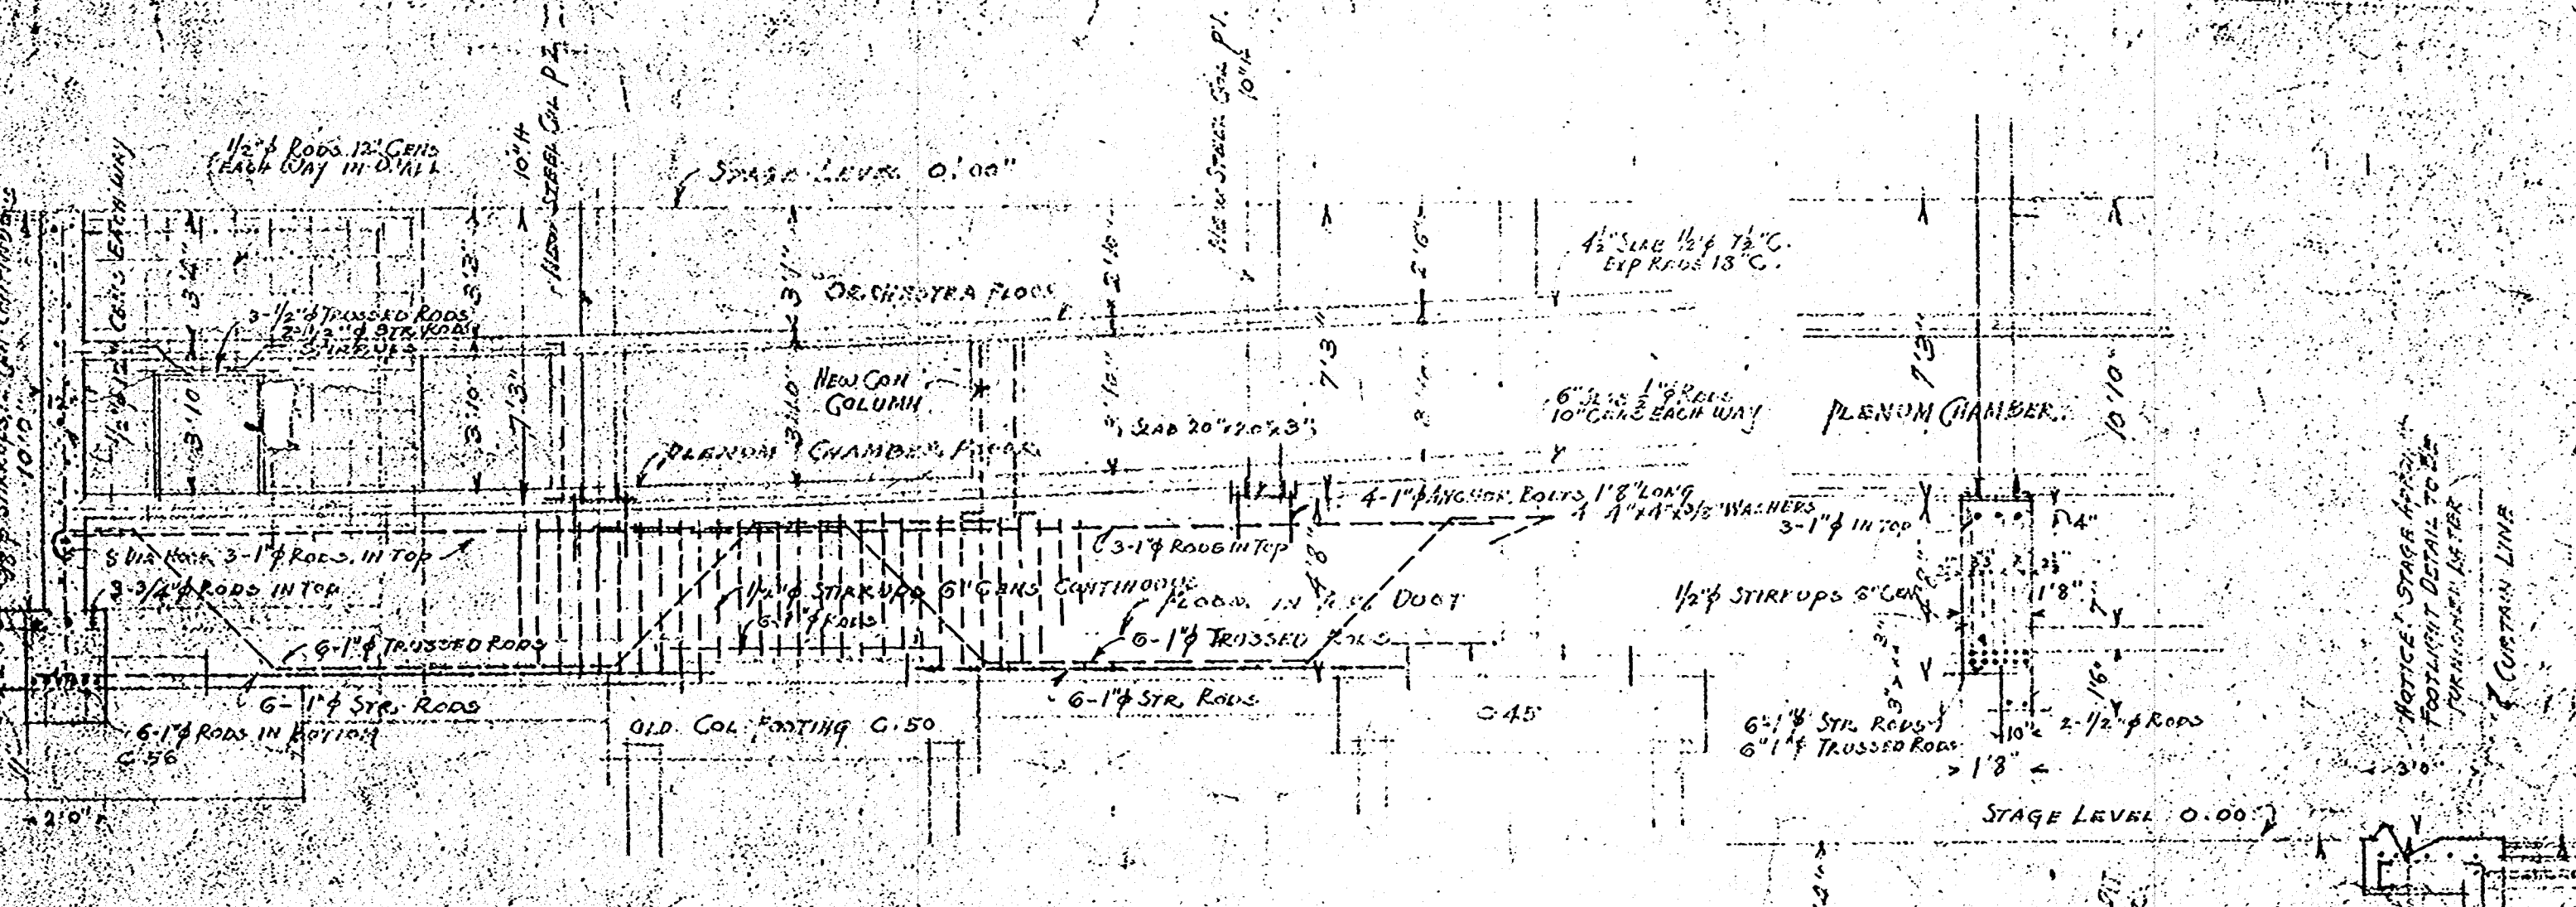 1/2"φ RODS 12" CENS
EACH WAY IN WALL
10"H
NEW STEEL COL P2
STAGE LEVEL 0'.00"
NEW STEEL COL P1.
10"H
1/2"φ 12" CENS EACH WAY
3'4"
3'3"
3'1"
2'10"
2'6"
7'3"
4½" SLAB ½"φ 7½"C.
EXP RODS 18"C.
ORCHESTRA FLOOR
3-1/2"φ TRUSSED RODS
2-1/2"φ STR RODS
STIRRUPS
10'0"
3'10"
3'10"
7'3"
3'10"
NEW CON
COLUMN
SLAB 20"x20"x3"
6" SLAB ½"φ RODS
10" CENS EACH WAY
7'3"
PLENUM CHAMBER
10'10"
PLENUM CHAMBER FLOOR
4-1"φ ANCHOR BOLTS 1'8" LONG
4 4"x4"x3/8" WASHERS
3-1"φ IN TOP
4"
HOOK 3-1"φ RODS IN TOP
3-1"φ RODS IN TOP
4'8"
3-3/4"φ RODS IN TOP
1/2"φ STIRRUPS 6" CENS CONTINUOUS
FLOOR IN DUCT
1/2"φ STIRRUPS 6" CEN
1'8"
7"
6-1"φ RODS
6-1"φ TRUSSED RODS
6-1"φ TRUSSED RODS
6-1"φ STR. RODS
6-1"φ STR. RODS
3"
1'6"
6-1"φ RODS IN BOTTOM
C.56
OLD COL FOOTING C.50
C.45
6-1"φ STR. RODS
6-1"φ TRUSSED RODS
10"
2-1/2"φ RODS
1'8"
2'0"
NOTICE! STAGE APRON
FOOTLIGHT DETAIL TO BE
FURNISHED LATER
CURTAIN LINE
3'0"
STAGE LEVEL 0.00